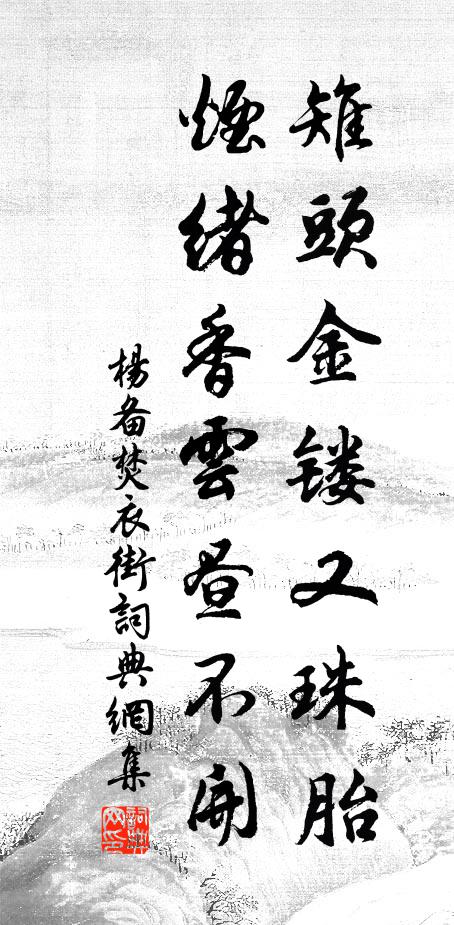 雉頭金镂又珠胎
煙緒香雲昼不開
楊备焚衣街詞典網集